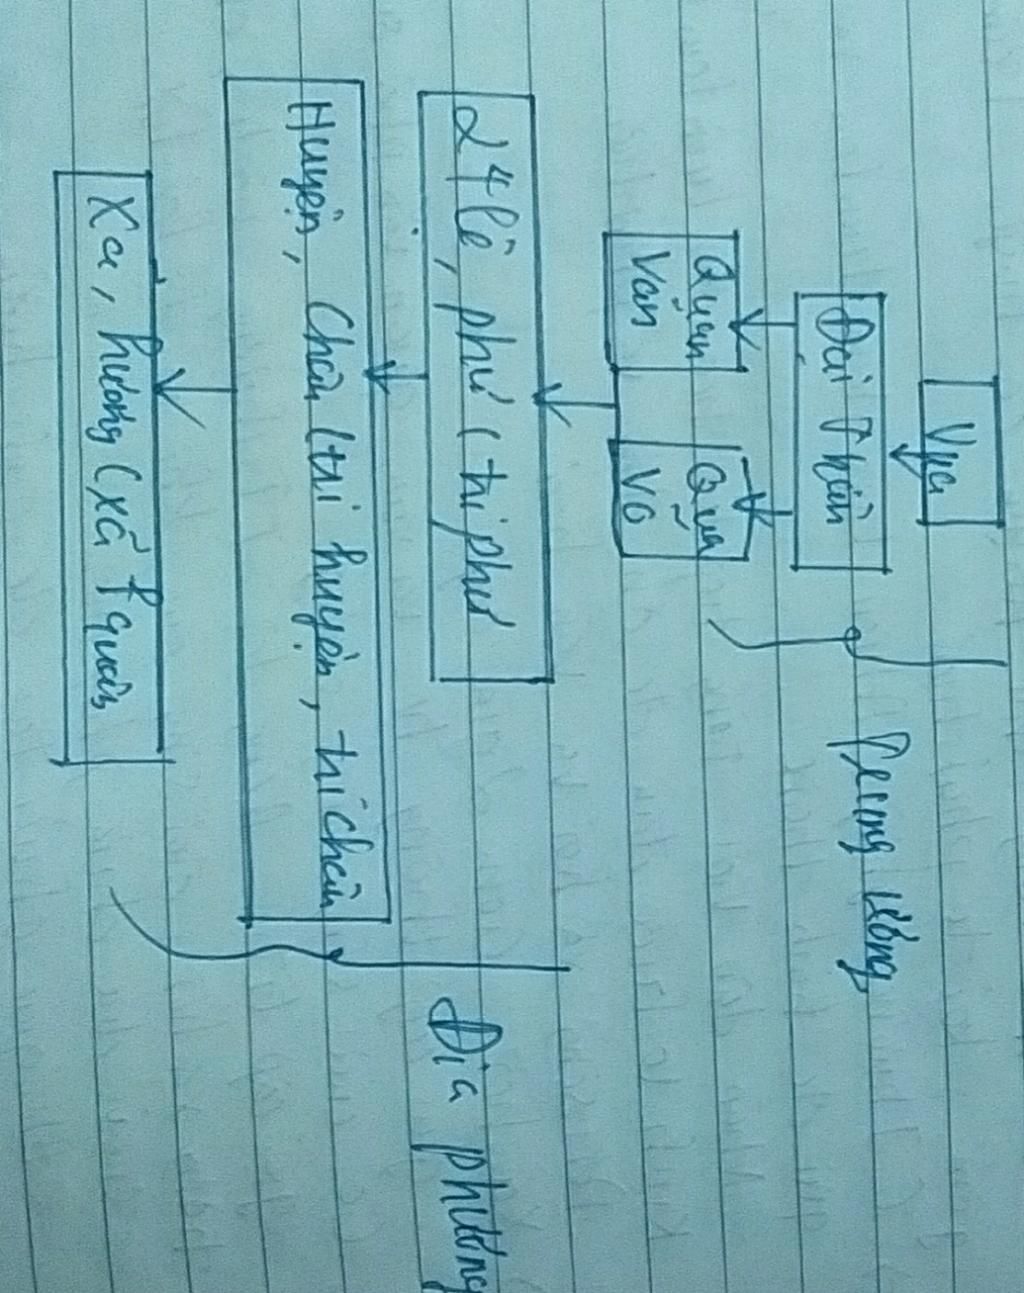 Vua
Đại Thần
Quan
Văn
Qua
Võ
Trung ương
24 lộ, phủ (tri phủ
Huyện, Châu (tri huyện, tri châu
Xã, hương (xã quan
Địa phương